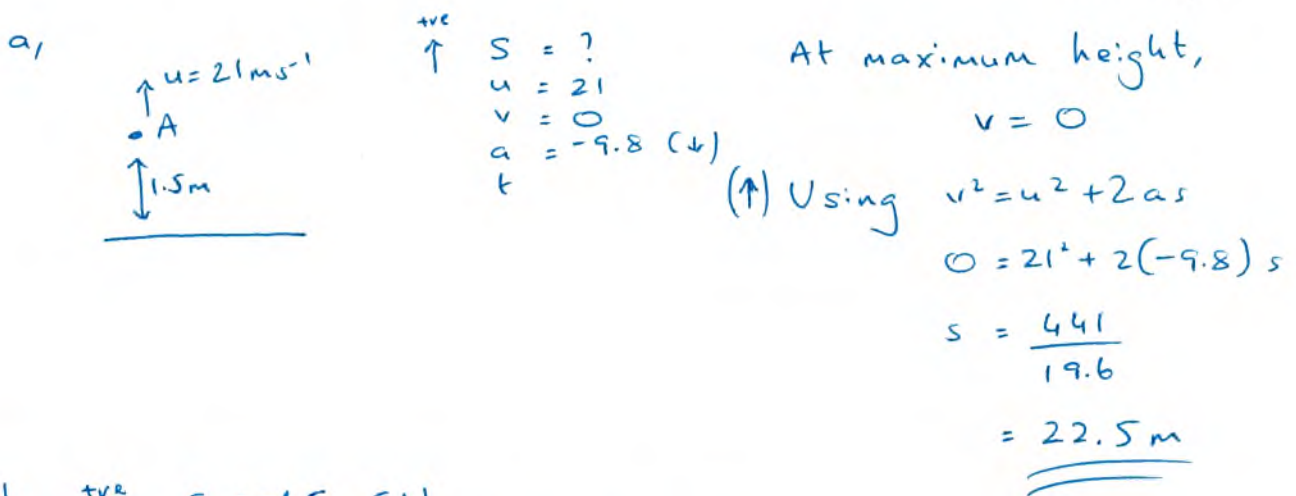 a,
u = 21 ms⁻¹
A
1.5m
+ve
↑ S = ?
u = 21
v = 0
a = -9.8 (↓)
t
At maximum height,
v = 0
(↑) Using v² = u² + 2as
0 = 21² + 2(-9.8) s
s = 441/19.6
= 22.5 m
+ve